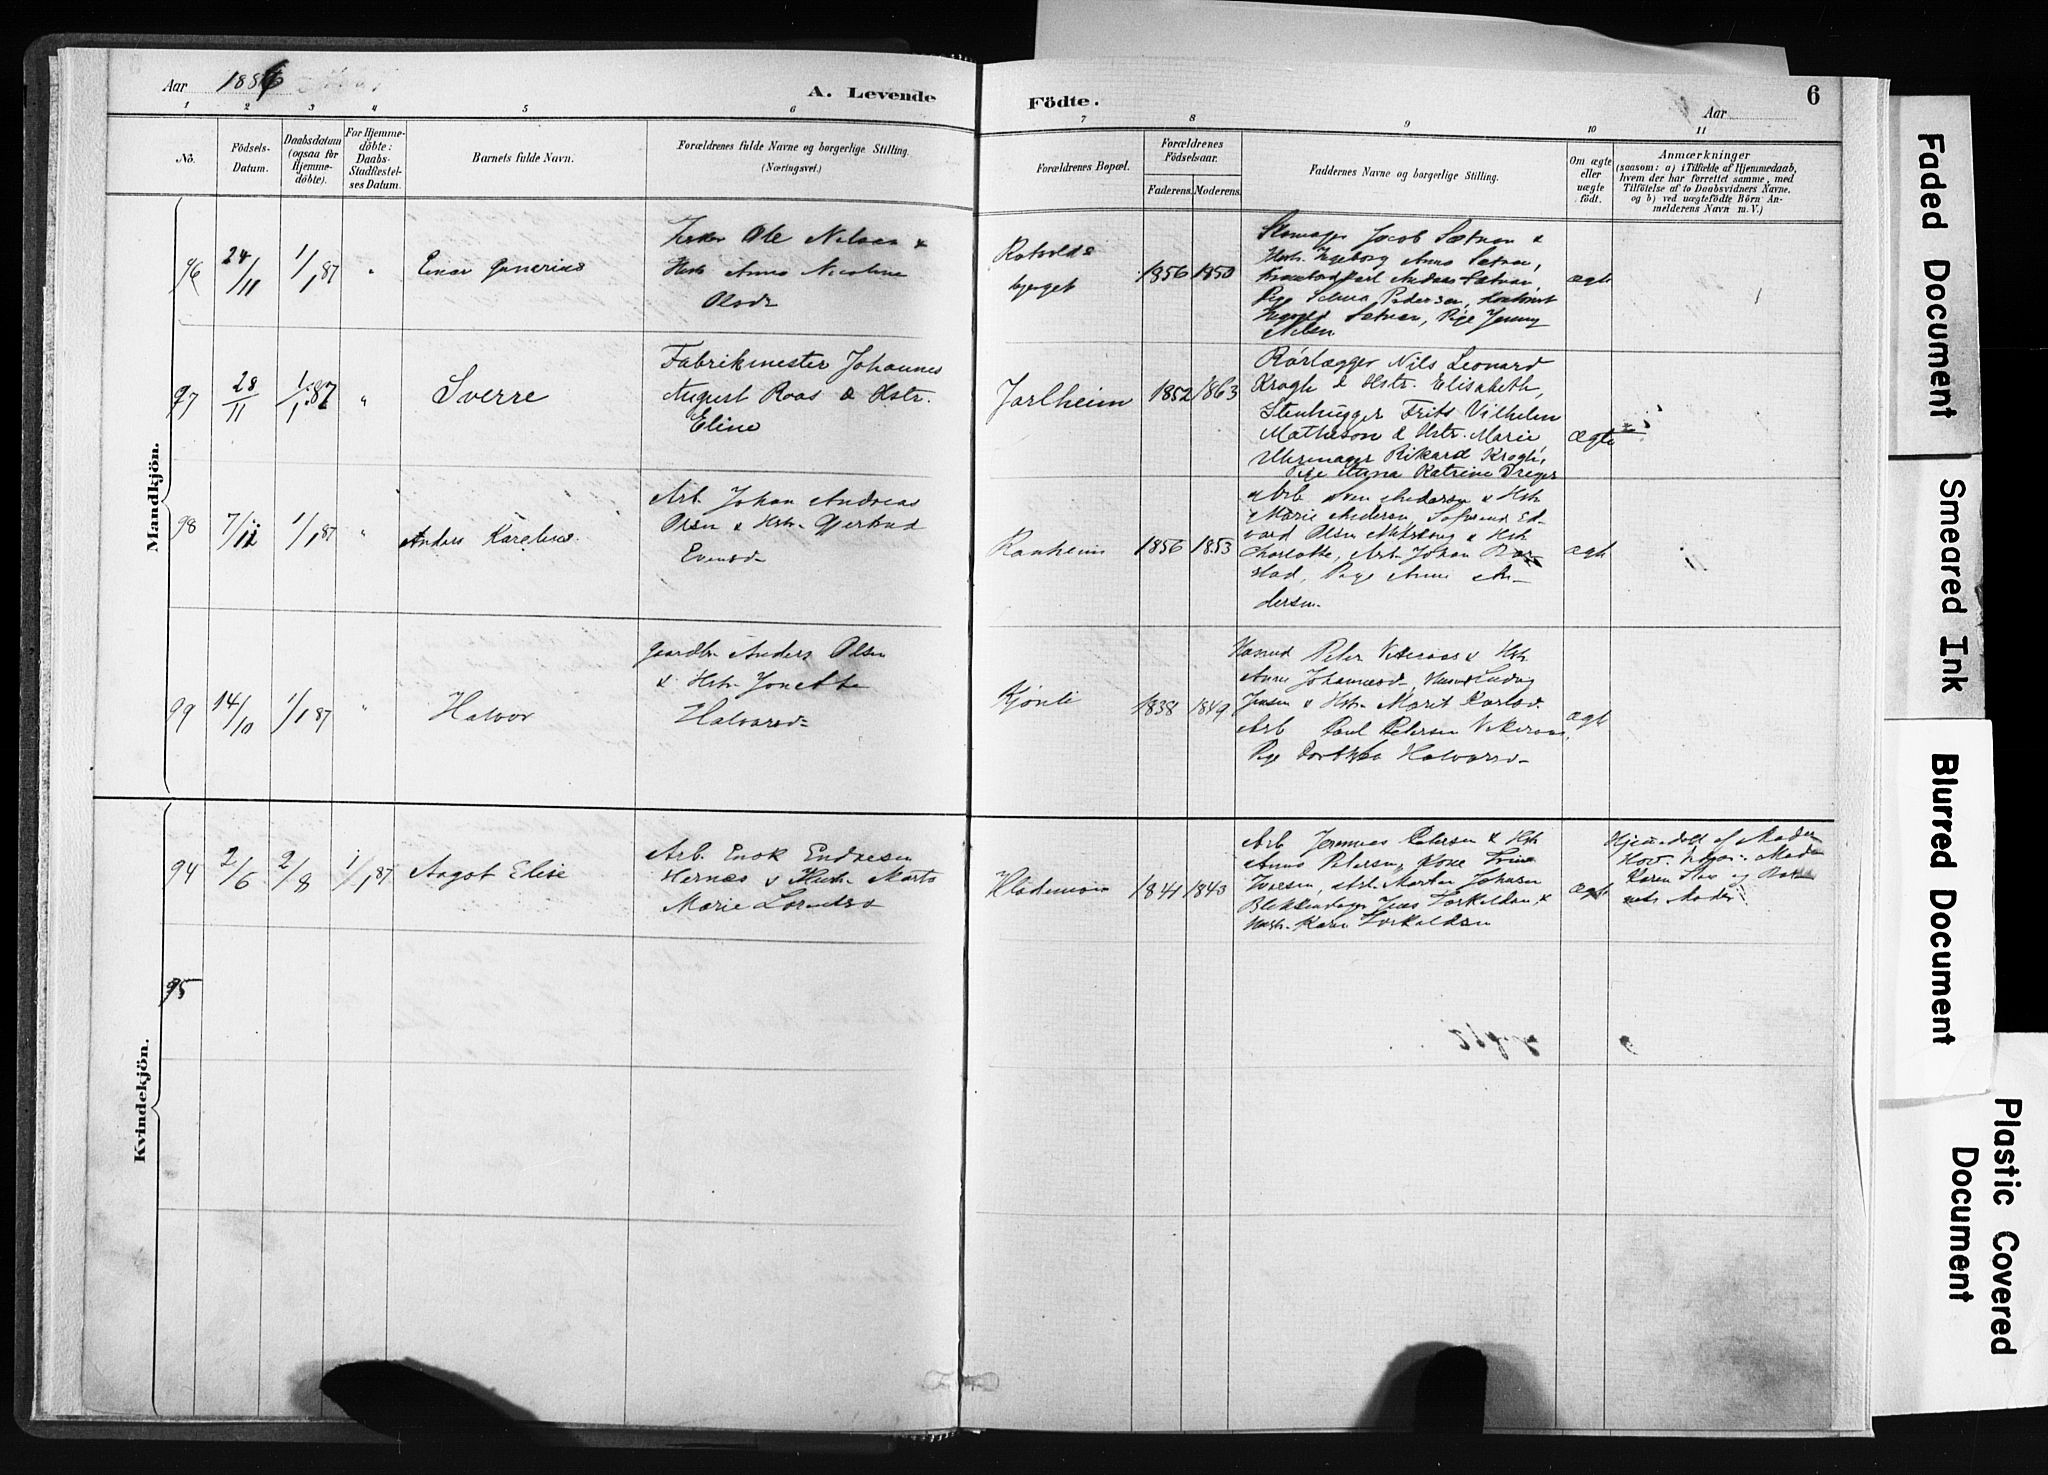 Aar 1886
A. Levende
Födte.
Aar
6
1 2 3 4 5 6 7 8 9 10 11
No.
Födsels-
Datum.
Daabsdatum
(ogsaa for
Hjemme-
döbte).
For Hjemme-
döbte:
Daabs-
Stadfæstel-
ses Datum.
Barnets fulde Navn.
Forældrenes fulde Navne og borgerlige Stilling.
(Næringsvei.)
Forældrenes Bopæl.
Forældrenes
Födselsaar.
Faderens. Moderens.
Faddernes Navne og borgerlige Stilling.
Om ægte
eller
uægte
født.
Anmærkninger
(saasom: a) i Tilfælde af Hjemmedaab,
hvem der har forrettet samme, med
Tilföielse af to Daabsvidners Navne.
og b) ved uægtefödte Börn An-
melderens Navn m. V.)
Mandkjön.
96
24/11
1/1 87
"
Einar
Ole Nilsen &
Hstr Anna Nicoline
Olsdr
Rotvolds
bjerget
1856
1850
Skomager Jacob Sætran &
Hstr. Ingeborg Anna Sætran,
Andreas Sætran,
Pige Selma Pedersen,
Sætran, Pige Jenny
Nilsen
ægte
97
28/11
1/1 87
"
Sverre
Fabrikmester Johannes
August Roos & Hstr.
Eline
Jarlheim
1852
1863
Rørlægger Nils Leonard
Krogh & Hstr. Elisabeth,
Stenhugger Frits Vilhelm
Mathison & Hstr. Marie,
Uhrmager Rikard Krogh,
Pige Anna Katrine Dreyer
ægte
98
7/12
1/1 87
"
Anders Karelius
Arb. Johan Andreas
Olsen & Hstr Gjertrud
Evensdr
Ranheim
1856
1853
Arb Sven Anderson & Hstr
Marie Anderson, Ed-
vard Olsen & Hstr
Charlotte, Arb. Johan
stad, Pige Anne An-
dersen.
ægte
99
14/10
1/1 87
"
Halvor
Gaardbr Anders Olsen
& Hstr Jonetta
Halvorsdr
1838
1849
Husmd Peter Vikeraas & Hstr
Anne Johannesdr, Husmd Ludvig
Jensen & Hstr Marit Karlsdr
Arb Paul Petersen Vikeraas,
Pige Dorthea Halvorsdr
ægte
Kvindekjön.
94
2/6
2/8
1/1 87
Aagot Elise
Arb. Enok Endresen
Hernes & Hustr. Marta
Marie Lorentsdr
Hlademoen
1841
1843
Arb Petersen & Hstr
Anna Petersen, Kone Trine
Iversen, Arb. Morten Johnsen
Blikkenslager Jens Torkildsen &
Hustr. Karen Torkildsen
ægte
Hjemdøbt af
Karen og Bar-
nets Moder
95
Faded Document
Smeared Ink
Blurred Document
Plastic Covered
Document